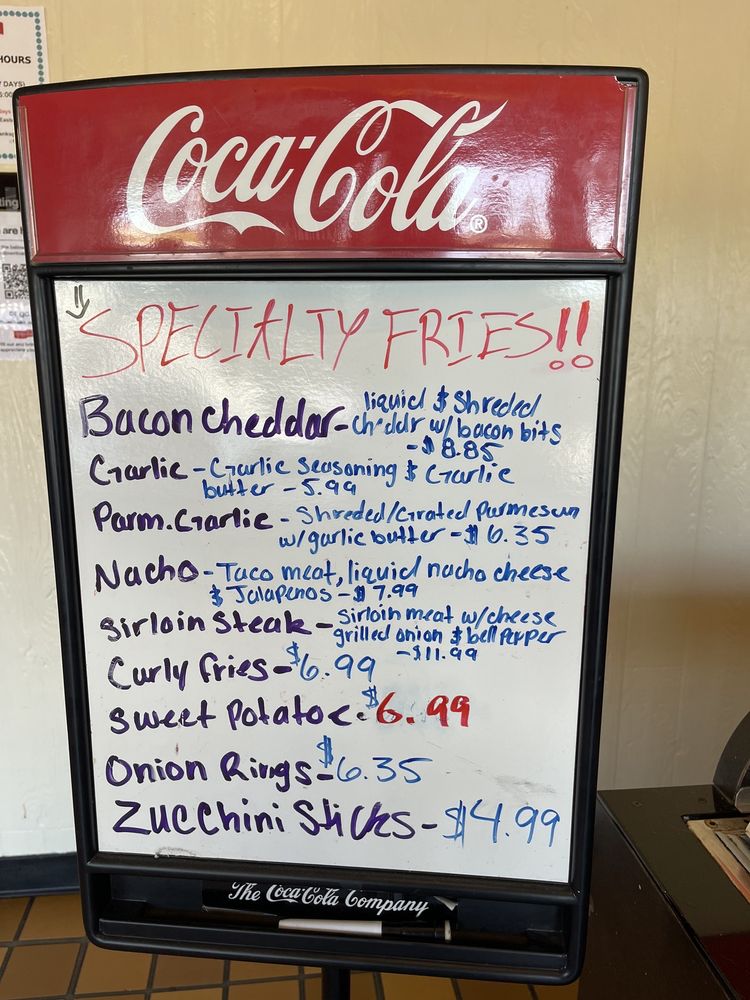 HOURS
Coca-Cola®
SPECIALTY FRIES!!
Bacon cheddar - liquid & Shreded
cheddr w/ bacon bits
- $8.85
Garlic - Garlic Seasoning & Garlic
butter - 5.99
Parm. Garlic - Shreded/Grated Parmesan
w/garlic butter - $6.35
Nacho - Taco meat, liquid nacho cheese
& Jalapenos - $7.99
Sirloin Steak - Sirloin meat w/cheese
grilled onion & bell Perper
- $11.99
Curly fries - $6.99
Sweet Potatoe - $6.99
Onion Rings - $6.35
Zucchini Sticks - $4.99
The Coca-Cola Company